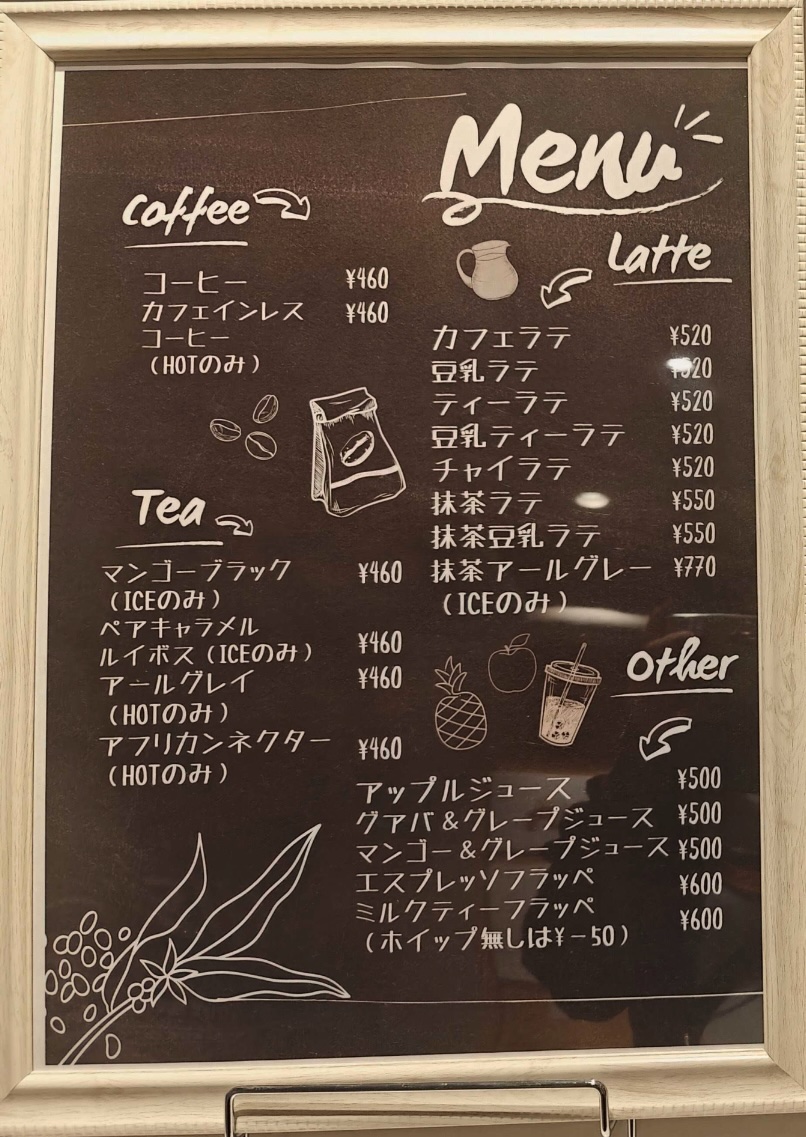 Menu
Coffee
コーヒー ¥460
カフェインレス ¥460
コーヒー
(HOTのみ)
Tea
マンゴーブラック ¥460
(ICEのみ)
ペアキャラメル
ルイボス(ICEのみ) ¥460
アールグレイ ¥460
(HOTのみ)
アフリカンネクター ¥460
(HOTのみ)
Latte
カフェラテ ¥520
豆乳ラテ ¥520
ティーラテ ¥520
豆乳ティーラテ ¥520
チャイラテ ¥520
抹茶ラテ ¥550
抹茶豆乳ラテ ¥550
抹茶アールグレー ¥770
(ICEのみ)
Other
アップルジュース ¥500
グアバ&グレープジュース ¥500
マンゴー&グレープジュース ¥500
エスプレッソフラッペ ¥600
ミルクティーフラッペ ¥600
(ホイップ無しは¥−50)